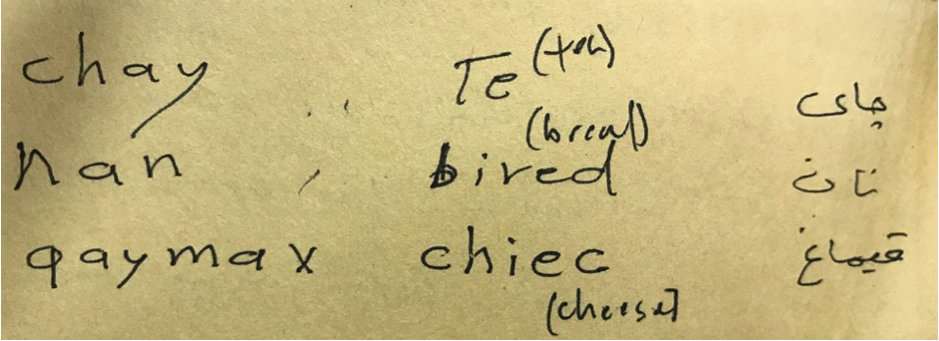 chay Te (tea) چای
nan bired (bread) نان
qaymax chiec (cheese) قیماغ